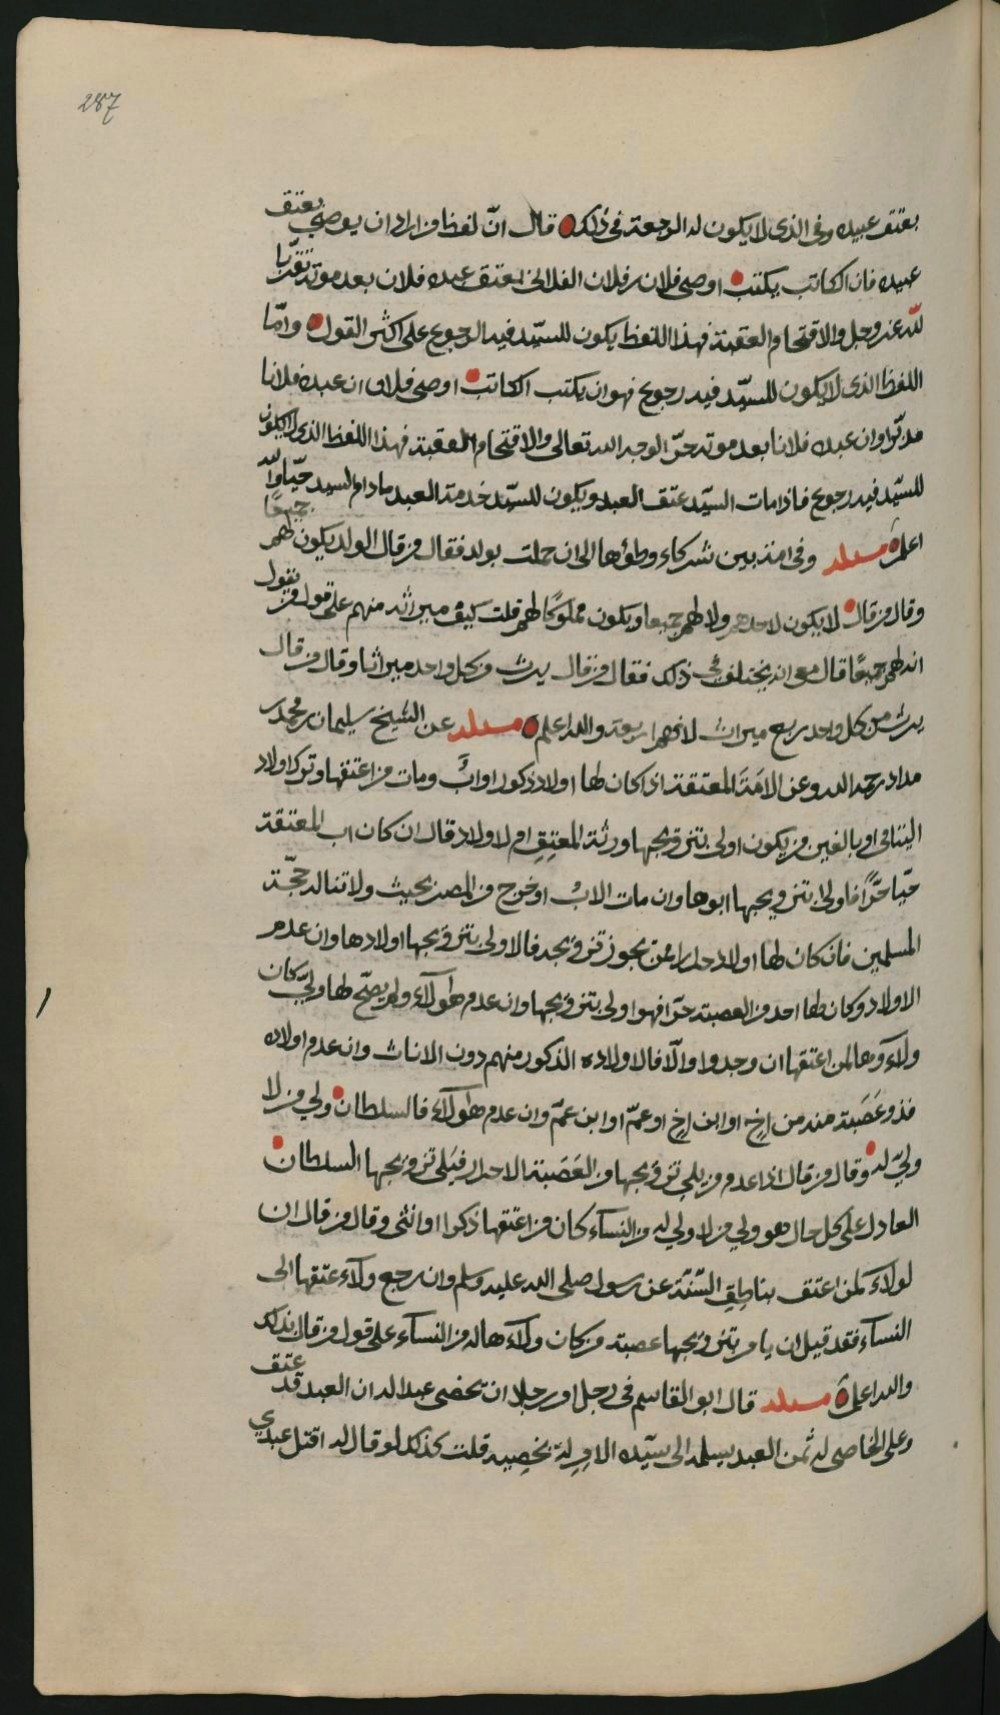 287
بعتق عبيده وفي الذى لا يكون له الرجعة فى ذلك قال انّ لفظ من اراد ان يوصي بعتق
عبيده فان الكاتب يكتب اوصى فلان بن فلان الفلانى بعتق عبده فلان بعد موته تقرّبا
لله عز وجل والاقتحام العقبة فهذا اللفظ يكون للسيّد فيه الرجوع على اكثر القول وامّا
اللفظ الذى لا يكون للسيّد فيه رجوع فهو ان يكتب الكاتب اوصى فلان ان عبده فلانا
مدبّرا وان عبده فلانا بعد موته حرّ لوجه الله تعالى والاقتحام العقبة فهذا اللفظ الذى لا يكون
للسيّد فيه رجوع فاذا مات السيّد عتق العبد ويكون للسيّد خدمة العبد مادام السيد حيّا والله
اعلم مسئلة وفى امة بين شركاء وطؤها الى ان حملت بولد فقال من قال الولد يكون لهم جميعًا
وقال من قال لا يكون لاحدهم ولا لهم جميعا ويكون مملوكًا لهم قلت كيف ميراثه منهم على قول من يقول
انه لهم جميعًا قال معى انه يختلف فى ذلك فقال من قال يرث من كل واحد ميراثا وقال من قال
يرث من كل واحد ربع ميراث لانهم اربعة والله اعلم مسئلة عن الشيخ سليمان بن محمد بن
مداد رحمه الله وعن الامَة المعتقة اذا كان لها اولاد ذكور او اناث ومات من اعتقها وترك اولاد
اليتامى او بالغين من يكون اولى بتزويجها ورثة المعتِق ام لا ولاد قال ان كان اب المعتقة
حيّا حرًّا فاولى بتزويجها ابوها وان مات الاب او خرج من المصر بحيث ولا تناله حجّة
المسلمين فان كان لها اولاد احرارا ممن يجوز تزويجه فالاولى بتزويجها اولادها وان عدم
الاولاد وكان لها احد من العصبة حرّا فهو اولى بتزويجها وان عدم هؤلآء ولم يصحّ لها وليّ كان
ولآؤها لمن اعتقها ان وجدوا والّا فالاولاده الذكور منهم دون الاناث وان عدم اولاده
فذو عَصَبة منه من اخ او ابن اخ او عمّ او ابن عمّ وان عدم هؤلآء فالسلطان ولي من لا
وليّ له وقال من قال اذا عدم من يلي تزويجها من العَصَبة الاحرار فيَلى تزويجها السلطان
العادل على كل حال هو ولي من لا ولي له من النسآء كان من اعتقها ذكرا او انثى وقال من قال ان
لولاء لمن اعتق بناطِقِ السّنّة عن رسول صلى الله عليه وسلم وان رجع ولآء عتقها الى
النسآء فقد قيل ان يامر بتزويجها عصبة من كان ولآءها له من النسآء على قول من قال بذلك
والله اعلم مسئلة قال ابو القاسم فى رجل امر رجلا ان يخصى عبدا له ان العبد قد عتق
وعلى الخاصى له ثمن العبد يسلمه الى سيّده الآمِر له بخصيه قلت كذلك لو قال له اقتل عبدي